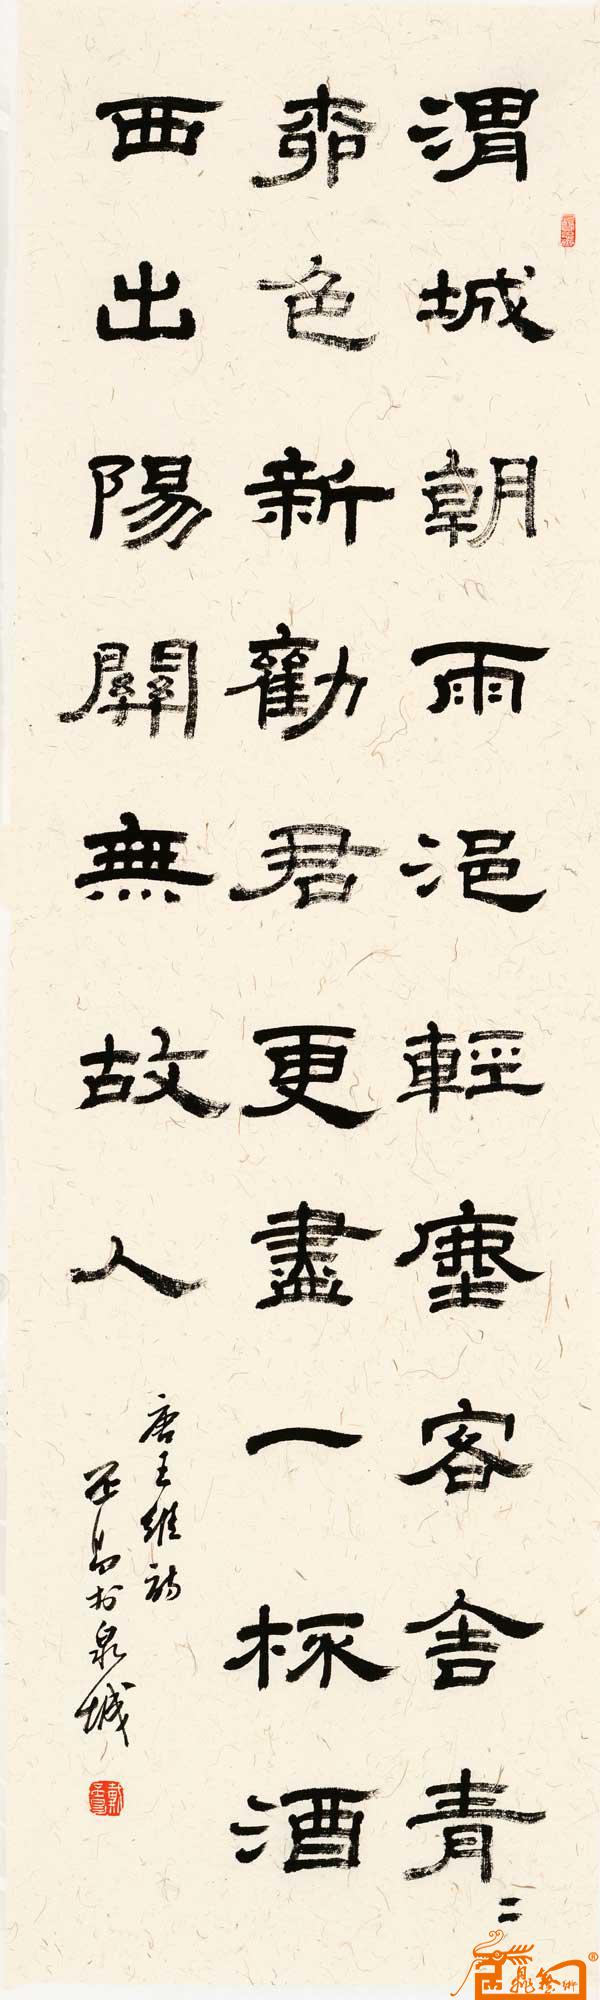 渭城朝雨浥輕塵客舍青〻
桺色新勸君更盡一杯酒
西出陽關無故人
唐王維詩
孟昌於泉城